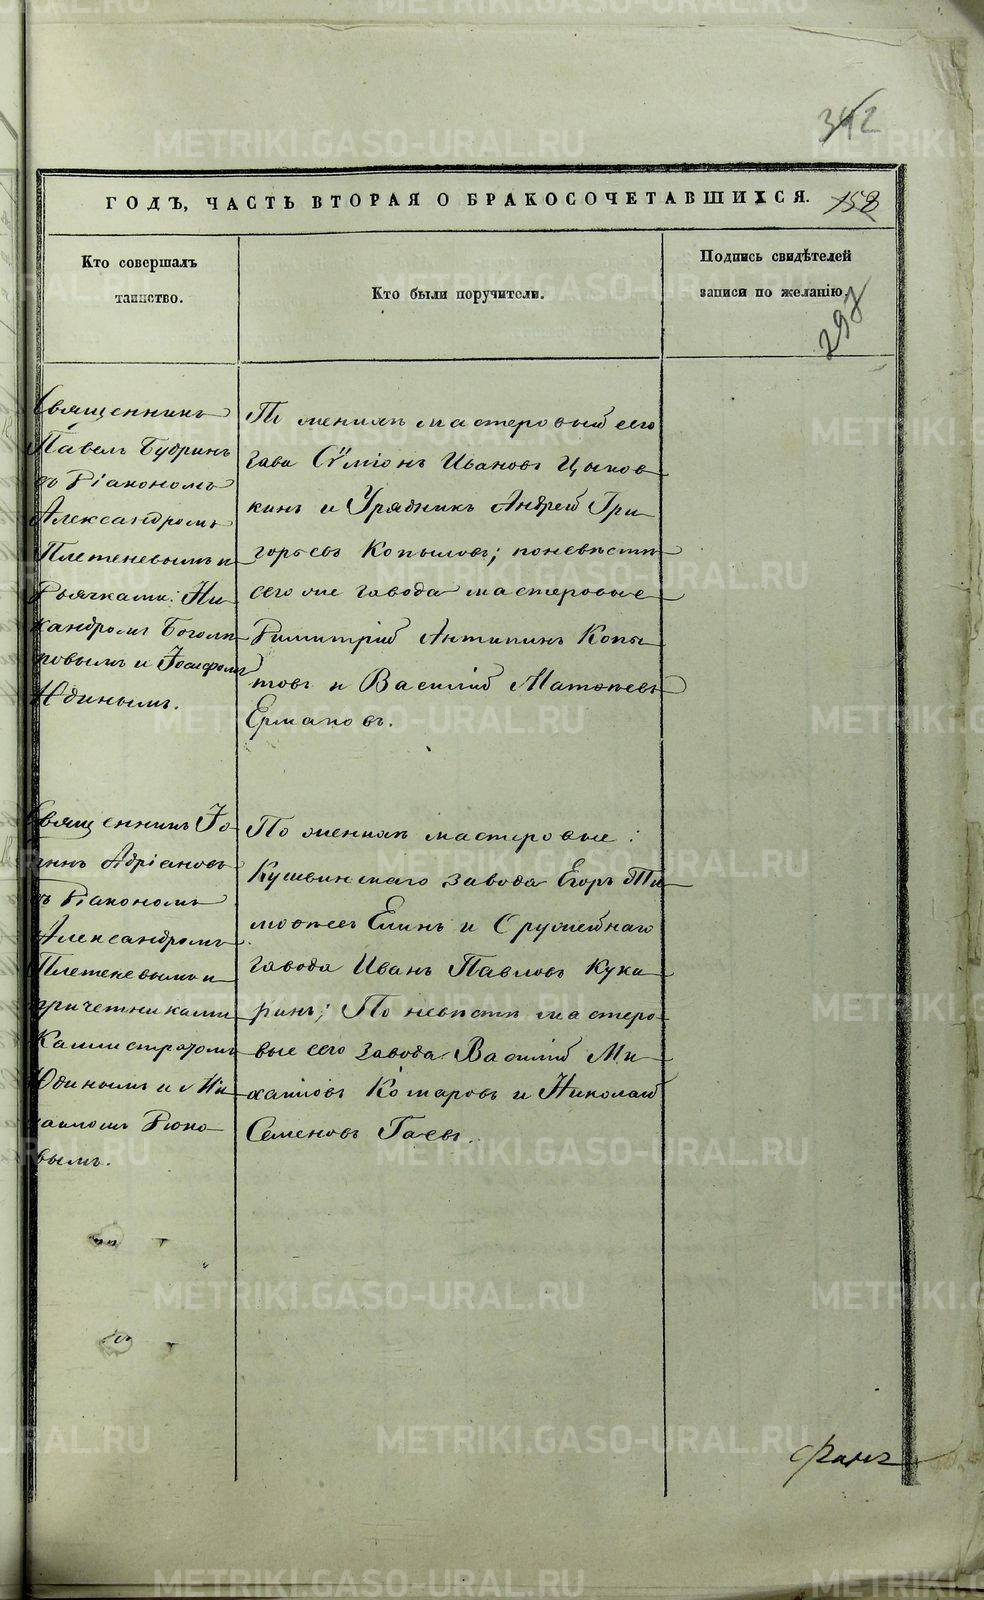 342
ГОДЪ, ЧАСТЬ ВТОРАЯ О БРАКОСОЧЕТАВШИХСЯ. 158
Кто совершалъ
таинство.
Кто были поручители.
Подпись свидѣтелей
записи по желанію.
Священникъ
Павелъ Будринъ
съ Діакономъ
Александромъ
Плетеневымъ и
Дьячками: Ни
кандромъ
и Іосифомъ
Юдинымъ.
По женихѣ мастеровый сего
Сѵміонъ Ивановъ Цыков
кинъ и Урядникъ Андрей Гри
горьевъ Копыловъ; по невѣстѣ
сего же завода мастеровые
Димитрій Антипинъ Копы
товъ и Василій Матвѣевъ
Ермаковъ.
Священникъ Іо
аннъ Адріановъ
съ Діакономъ
Александромъ
Плетеневымъ и
причетниками
Каллистратомъ
Юдинымъ и Ми
хаиломъ
вымъ.
По женихѣ мастеровые:
Кушвинскаго завода Егоръ Ти
мофеевъ Елинъ и Оружейнаго
завода Иванъ Павловъ Кука
ринъ; По невѣстѣ мастеро
вые сего завода Василій Ми
хаиловъ Комаровъ и Николай
Семеновъ Гаевъ.
METRIKI.GASO-URAL.RU